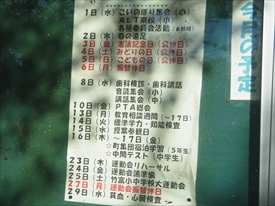 1日（水）こいのぼり集会（小）
ALT来校（小）
各種委員会活動（各校時）
2日（木）春の遠足
3日（金）憲法記念日（公休日）
4日（土）みどりの日（公休日）
5日（日）こどもの日（公休日）
6日（月）振替休日
8日（水）歯科検診・歯科講話
音読集会（小）
講話集会（中）
10日（金）PTA総会
13日（月）教育相談週間（～17日）
14日（火）標準学力・知能検査
15日（水）授業参観日
16日（木）～17日（金）
☆町集団宿泊学習（5年生）
☆中間テスト（中学生）
23日（木）運動会リハーサル
24日（金）運動会諸準備
25日（土）竹富小中学校大運動会
27日（月）運動会振替休日
29日（水）貧血・心臓検査